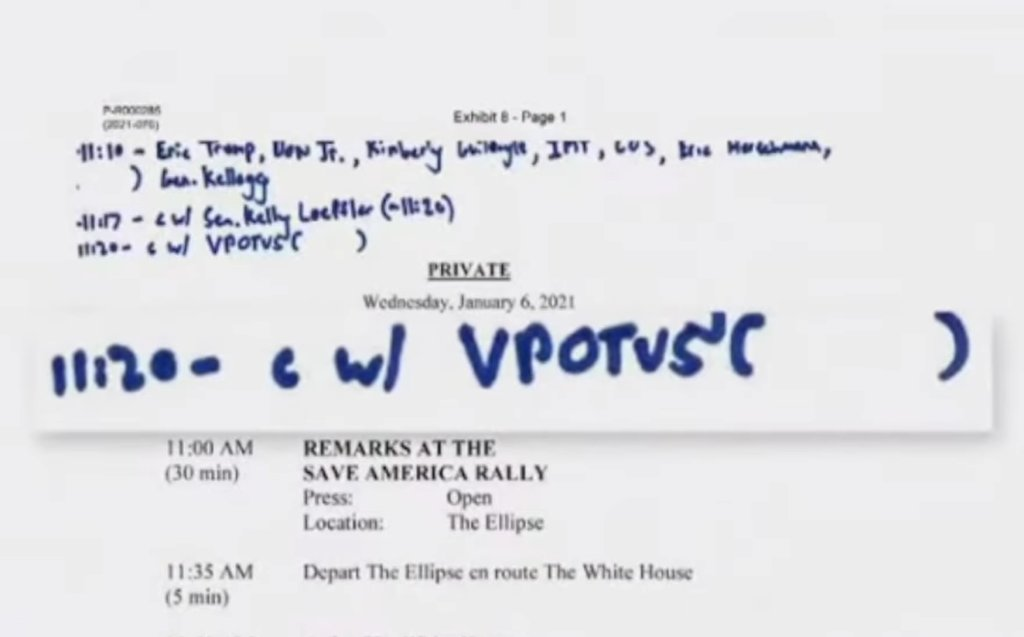 P-R000285
(2021-076)
Exhibit 8 - Page 1
~11:10 - Eric Trump, Don Jr., Kimberly Guilfoyle, IMT, LVS, Eric Herschmann,
) Gen. Kellogg
~11:17 - c w/ Sen. Kelly Loeffler (~11:20)
11:20 - c w/ VPOTUS (          )
PRIVATE
Wednesday, January 6, 2021
11:20 - c w/ VPOTUS (          )
11:00 AM REMARKS AT THE
(30 min) SAVE AMERICA RALLY
Press: Open
Location: The Ellipse
11:35 AM Depart The Ellipse en route The White House
(5 min)